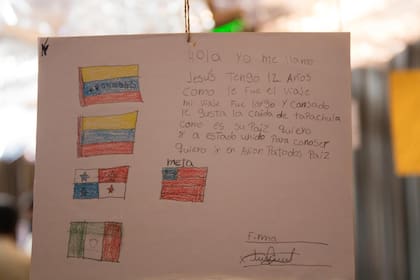 Hola Yo me llamo
Jesús Tengo 12 Años
Como le Fue el Viaje
mi viaje Fue largo y Cansado
le gusta la Ciuda de tapachula
Como es su Paiz quiero
ir a estado unido Para conoser
quiero ir en Avion Patodos Paiz
meta
Firma